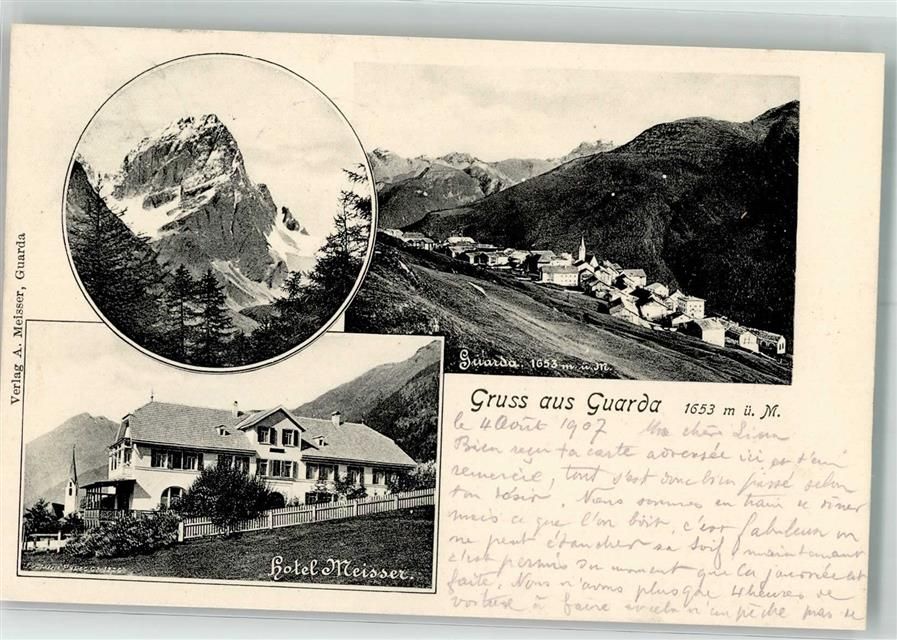 Verlag A. Meisser, Guarda
Guarda. 1653 m. ü. M.
Gruss aus Guarda 1653 m ü. M.
Hotel Meisser.
le 4 Août 1907 Ma chère
Bien reçu ta carte adressée ici et t'en
remercie, tout s'est donc bien passé selon
ton désir. Nous sommes en train de dîner
mais ce que l'on boit, c'est fabuleux on
ne peut étancher sa soif, maintenant
c'est permis du moment que la journée est
faite. Nous n'avons plus que 4 heures de
voiture à faire cela n'empêche pas de